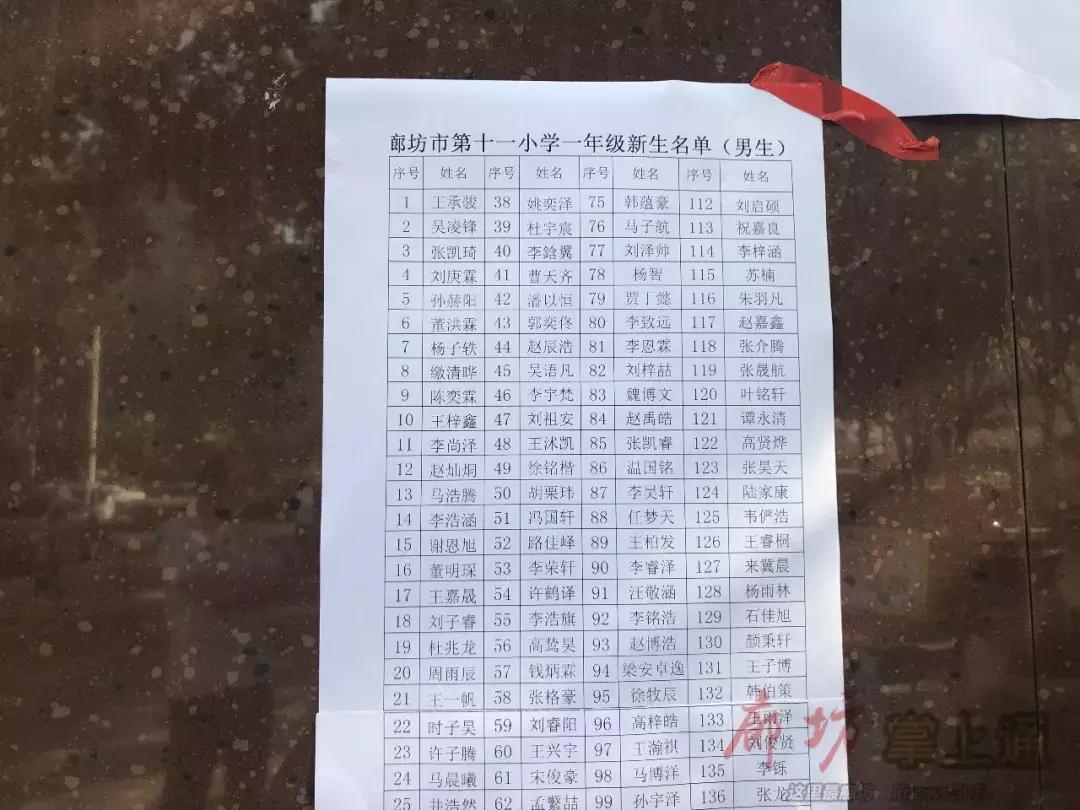 廊坊市第十一小学一年级新生名单（男生）
序号 姓名 序号 姓名 序号 姓名 序号 姓名
1 王承骏 38 姚奕泽 75 韩蕴豪 112 刘启硕
2 吴凌锋 39 杜宇宸 76 马子航 113 祝嘉良
3 张凯琦 40 李鋡翼 77 刘泽帅 114 李梓涵
4 刘庚霖 41 曹天齐 78 杨智 115 苏楠
5 孙赫阳 42 潘以恒 79 贾丁懿 116 朱羽凡
6 董洪霖 43 郭奕佟 80 李致远 117 赵嘉鑫
7 杨子轶 44 赵辰浩 81 李恩霖 118 张介腾
8 缴清晔 45 吴语凡 82 刘梓喆 119 张晟航
9 陈奕霖 46 李宇梵 83 魏博文 120 叶铭轩
10 王梓鑫 47 刘祖安 84 赵禹皓 121 谭永清
11 李尚泽 48 王沭凯 85 张凯睿 122 高贤烨
12 赵灿炯 49 徐铭楷 86 温国铭 123 张昊天
13 马浩腾 50 胡栗玮 87 李昊轩 124 陆家康
14 李浩涵 51 冯国轩 88 任梦天 125 韦俨浩
15 谢恩旭 52 路佳峄 89 王柏发 126 王睿桐
16 董明琛 53 李荣轩 90 李睿泽 127 来冀晨
17 王嘉晟 54 许鹤译 91 汪敬涵 128 杨雨林
18 刘子睿 55 李浩旗 92 李铭浩 129 石佳旭
19 杜兆龙 56 高鸷昊 93 赵博浩 130 颜秉轩
20 周雨辰 57 钱炳霖 94 梁安卓逸 131 王子博
21 王一帆 58 张格豪 95 徐牧辰 132 韩伯策
22 时子昊 59 刘睿阳 96 高梓皓 133 王雨泽
23 许子腾 60 王兴宇 97 王瀚祺 134 刘俊贤
24 马晨曦 61 宋俊豪 98 马博洋 135 李铄
25 井浩然 62 孟繁喆 99 孙宇泽 136 张龙
廊坊掌上通